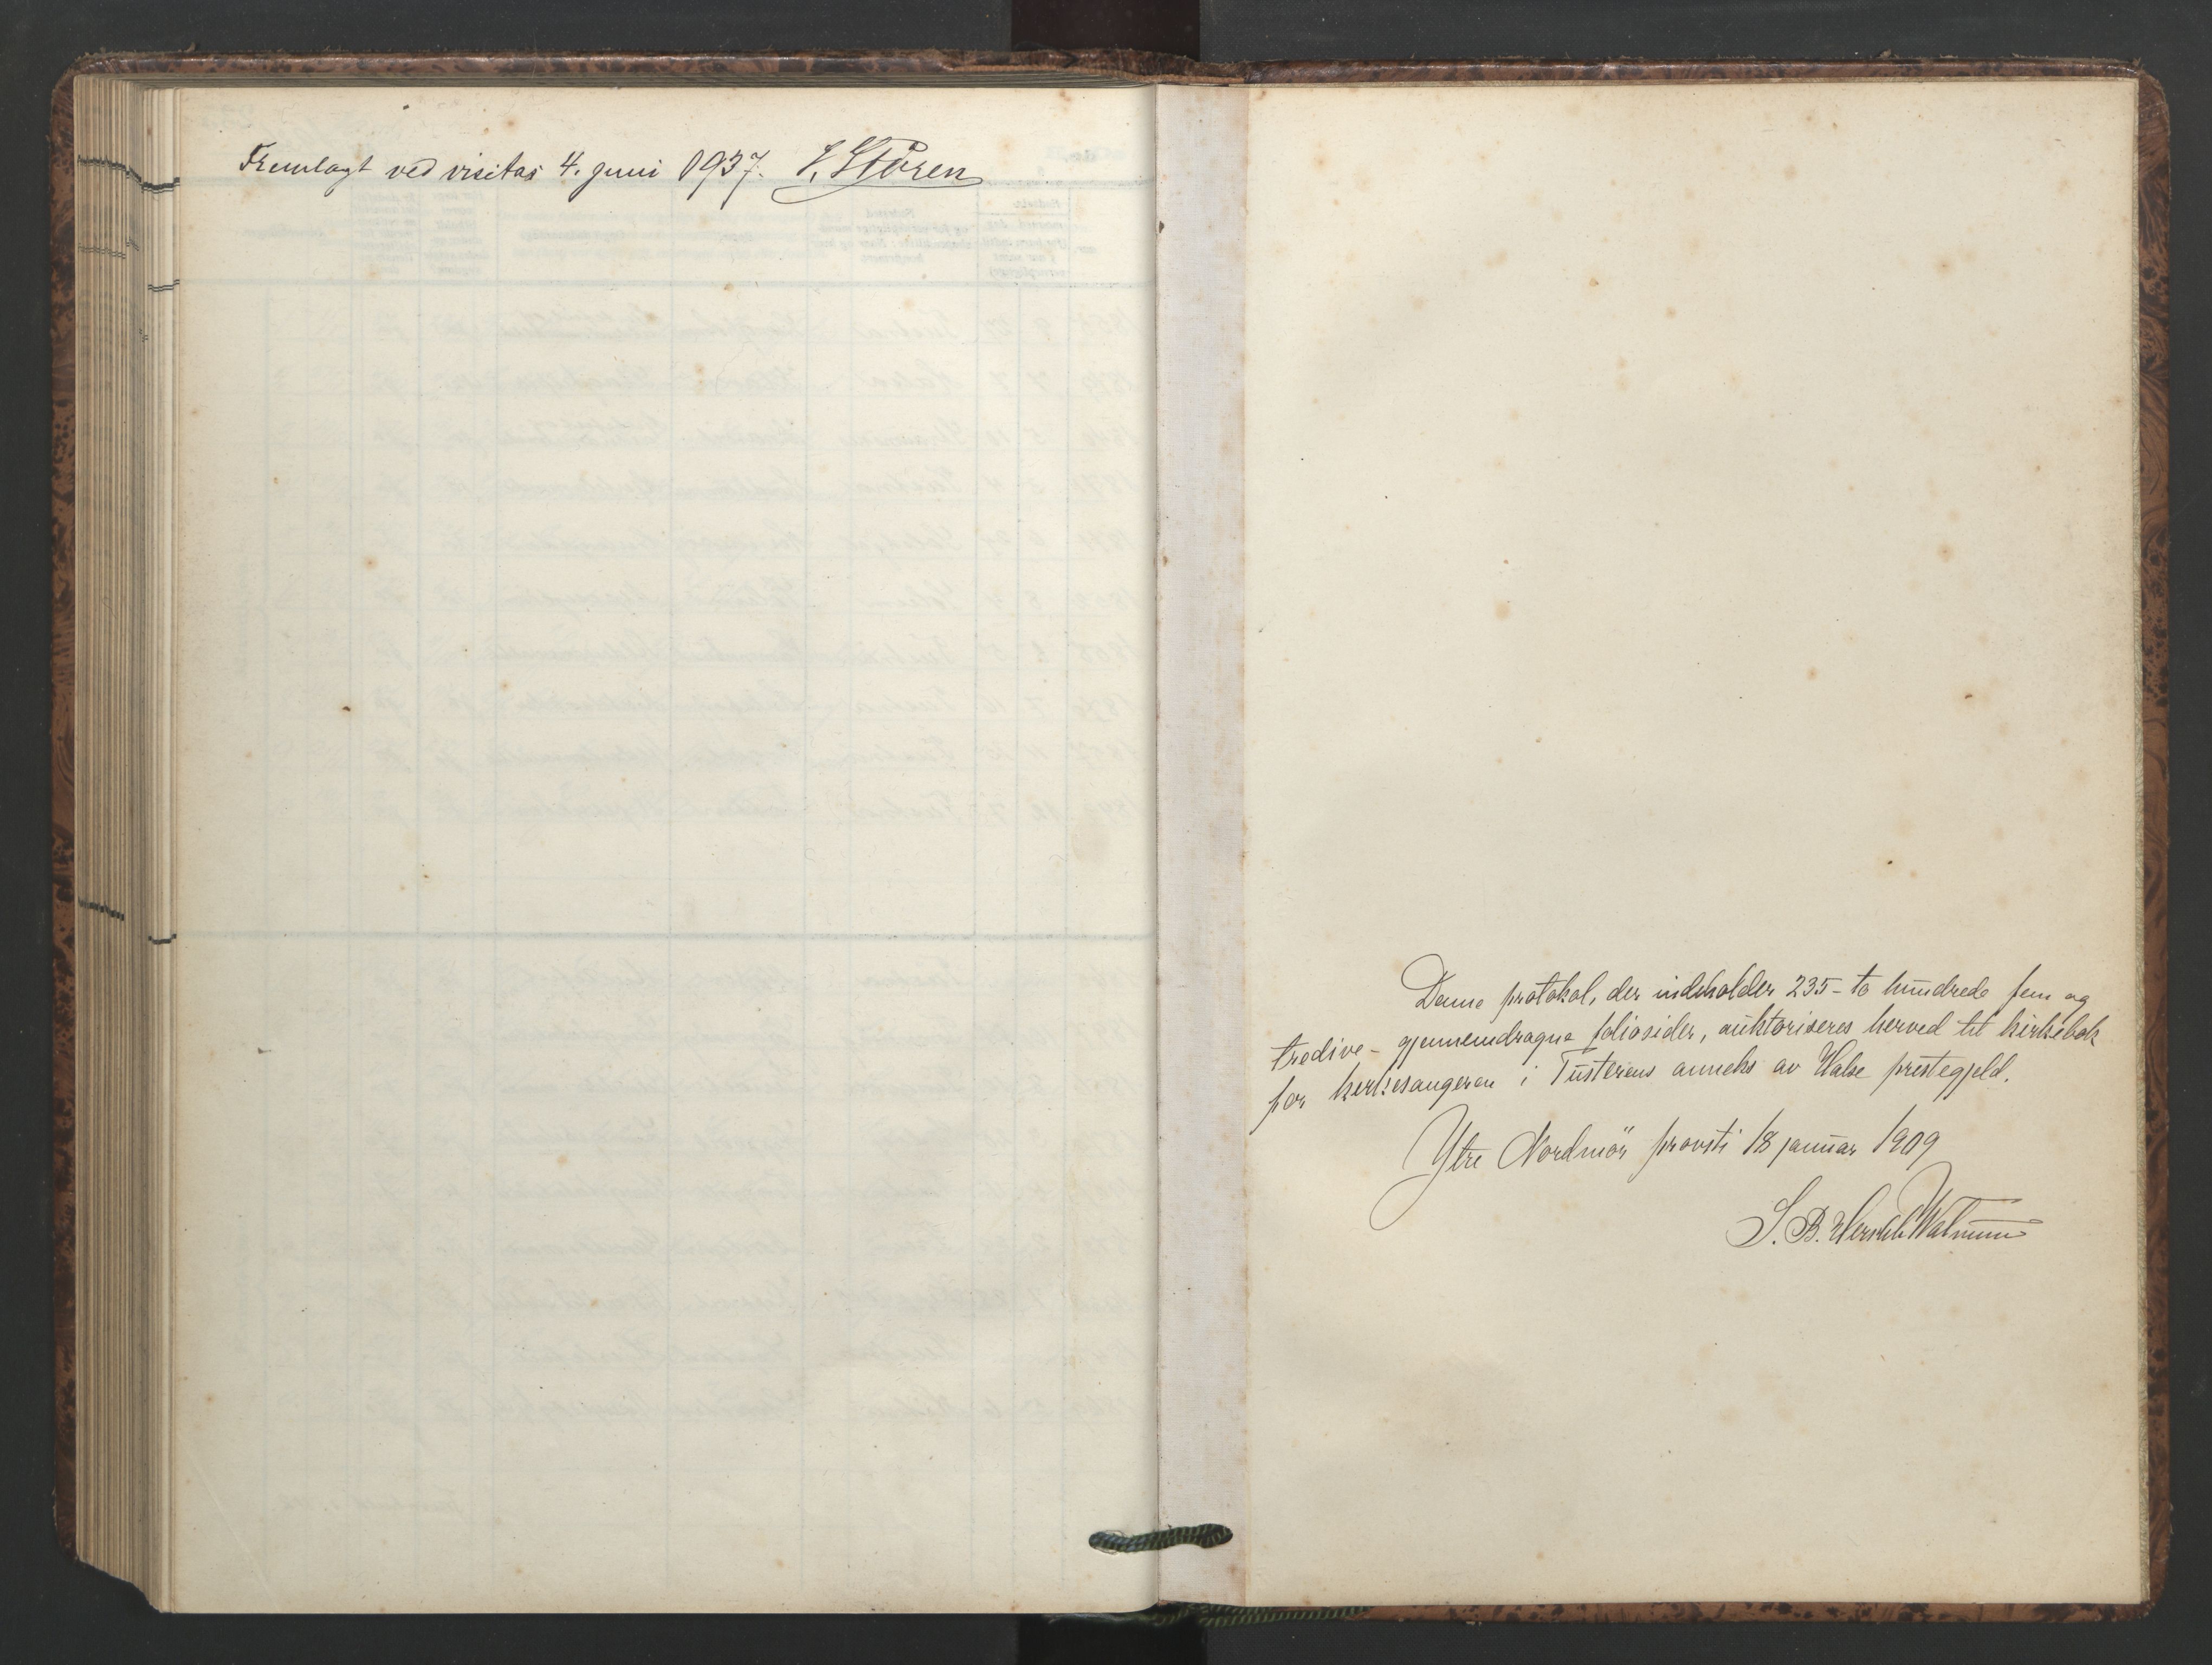 Fremlagt ved visitas 4. juni 1937. Støren
Denne protokol, der indeholder 235 - to hundrede fem og
tredive - gjennemdragne foliosider, auktoriseres herved til kirkebok
for kirkesangeren i Tusterens anneks av Halse prestegjeld.
Ytre Nordmör provsti 18 januar 1909
S. B. Hersleb Walnum